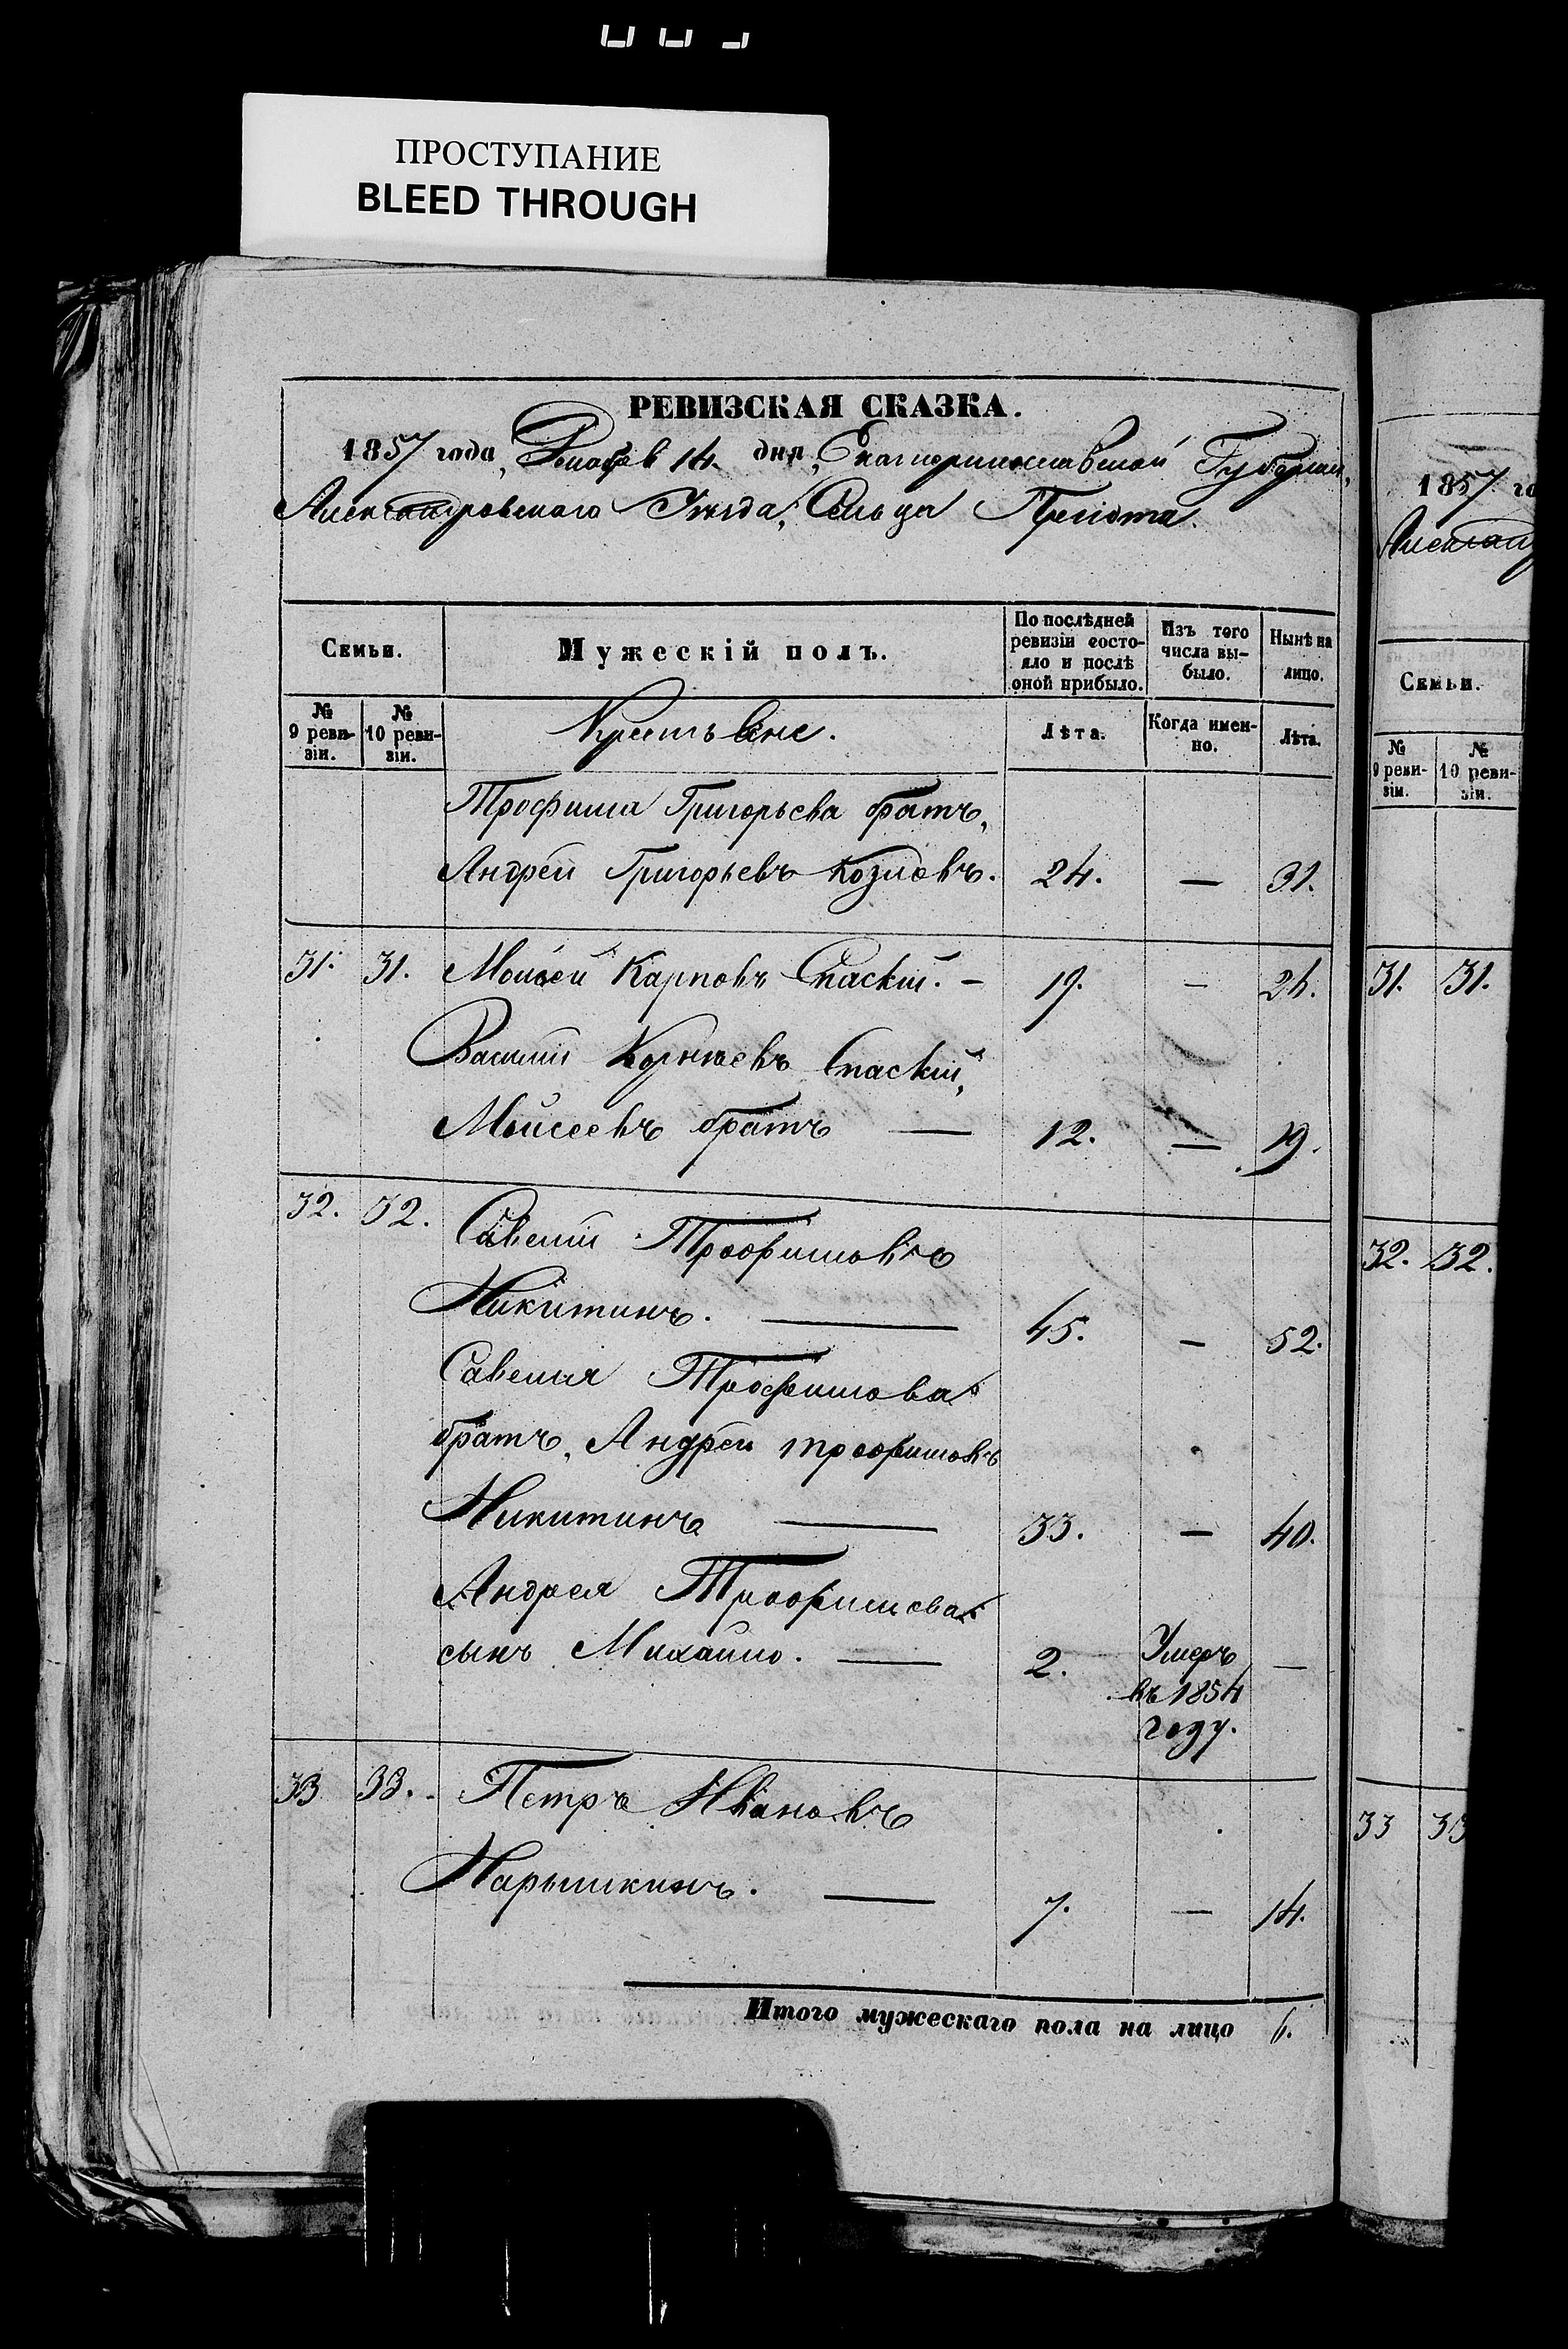 ПРОСТУПАНИЕ
BLEED THROUGH
РЕВИЗСКАЯ СКАЗКА.
1857 года, 14. дня, Екатеринославской Губернии,
Александровскаго Уѣзда, Сельца
Семьи.
Мужескій полъ.
По послѣдней ревизіи состояло и послѣ оной прибыло.
Изъ того числа выбыло.
Нынѣ на лицо.
№ 9 ревизіи.
№ 10 ревизіи.
Крестьяне.
Лѣта.
Когда именно.
Лѣта.
Трофима Григорьева братъ,
Андрей Григорьевъ Козловъ. 24. — 31.
31. 31. Моисей Карповъ Спаскій. — 19. — 26.
Василий Спаскій,
Моисеевъ братъ — 12. — 19.
32. 32. Савелий Трофимовъ
Никитинъ. — 45. — 52.
Савелия Трофимова
братъ, Андрей Трофимовъ
Никитинъ — 33. — 40.
Андрея Трофимова
сынъ Михайло. — 2. Умеръ —
въ 1854
году.
33 33. Петръ Ивановъ
Нарышкинъ. — 7. — 14.
Итого мужескаго пола на лицо 6.
1857 го
Александ
Семьи.
№ 9 ревизіи.
№ 10 ревизіи.
31. 31.
32. 32.
33 33